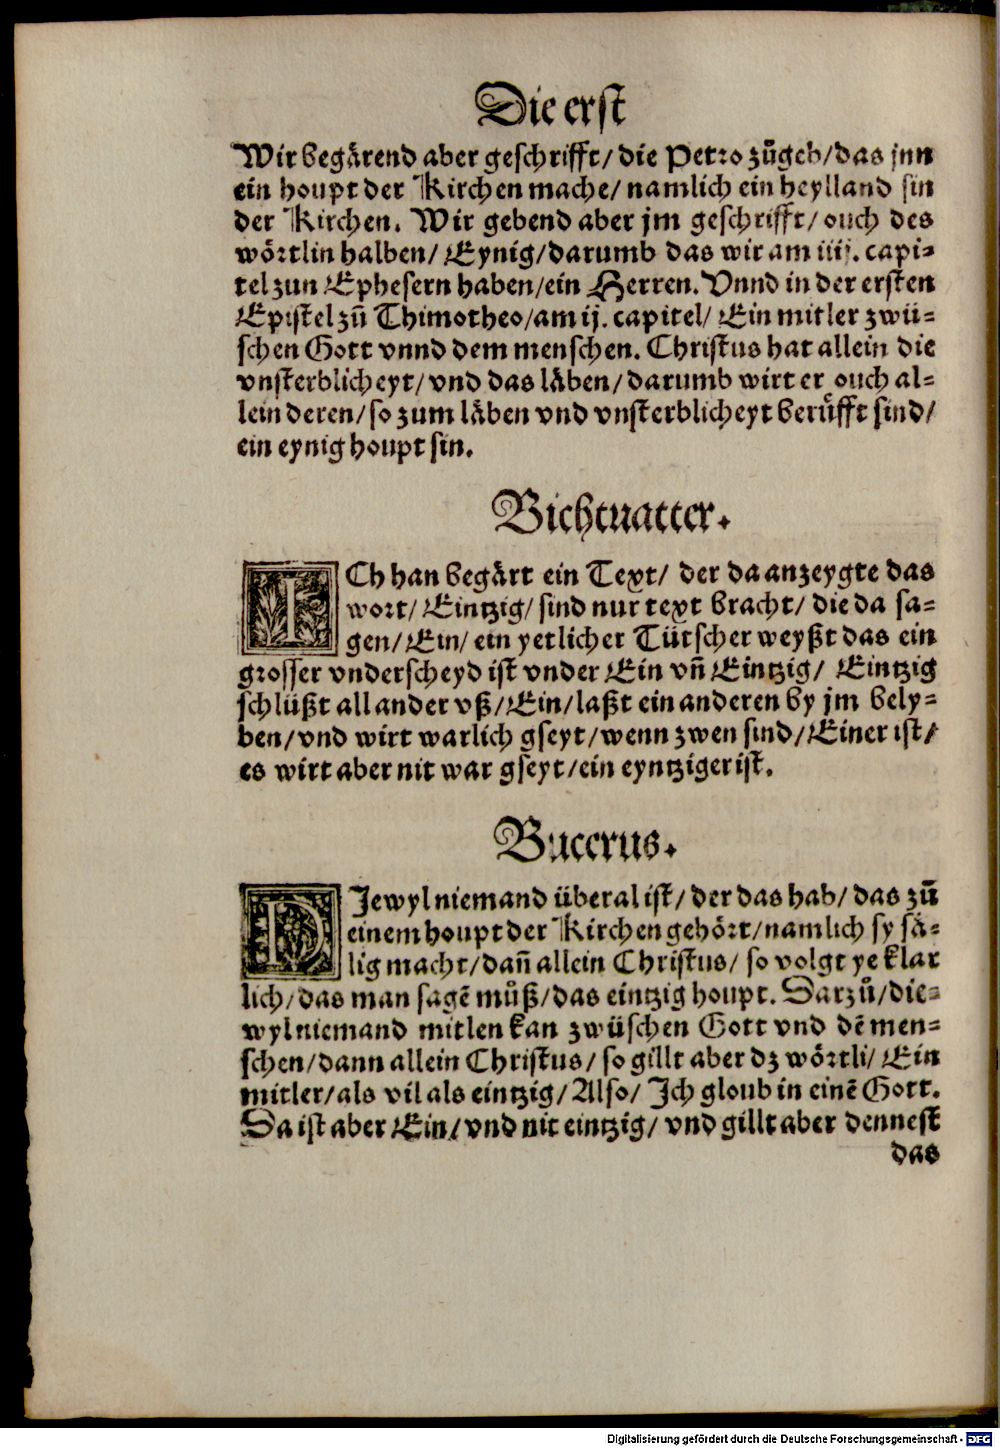 Die erst
Wir begärend aber geschrifft/ die Petro zůgeb/ das jnn
ein houpt der Kirchen mache/ namlich ein heylland sin
der Kirchen. Wir gebend aber jm geschrifft/ ouch des
wörtlin halben/ Eynig/ darumb das wir am iiij. capi-
tel zun Ephesern haben/ ein Herren. Vnnd in der ersten
Epistel zů Thimotheo/ am ij. capitel/ Ein mitler zwü-
schen Gott vnnd dem menschen. Christus hat allein die
vnsterblicheyt/ vnd das läben/ darumb wirt er ouch al-
lein deren/ so zum läben vnd vnsterblicheyt berüfft sind/
ein eynig houpt sin.
Bichtuatter.
ICh han begärt ein Text/ der da anzeygte das
wort/ Eintzig/ sind nur text bracht/ die da sa-
gen/ Ein/ ein yetlicher Tütscher weyßt das ein
grosser vnderscheyd ist vnder Ein vn̄ Eintzig/ Eintzig
schlüßt all ander vß/ Ein/ laßt ein anderen by jm bely-
ben/ vnd wirt warlich gseyt/ wenn zwen sind/ Einer ist/
es wirt aber nit war gseyt/ ein eyntziger ist.
Bucerus.
DJewyl niemand überal ist/ der das hab/ das zů
einem houpt der Kirchen gehört/ namlich sy sä-
lig macht/ dan̄ allein Christus/ so volgt ye klar
lich/ das man sagē můß/ das eintzig houpt. Darzů/ die-
wyl niemand mitlen kan zwüschen Gott vnd dē men-
schen/ dann allein Christus/ so gillt aber dz wörtli/ Ein
mitler/ als vil als eintzig/ Also/ Jch gloub in einē Gott.
Da ist aber Ein/ vnd nit eintzig/ vnd gillt aber dennest
das
Digitalisierung gefördert durch die Deutsche Forschungsgemeinschaft - DFG